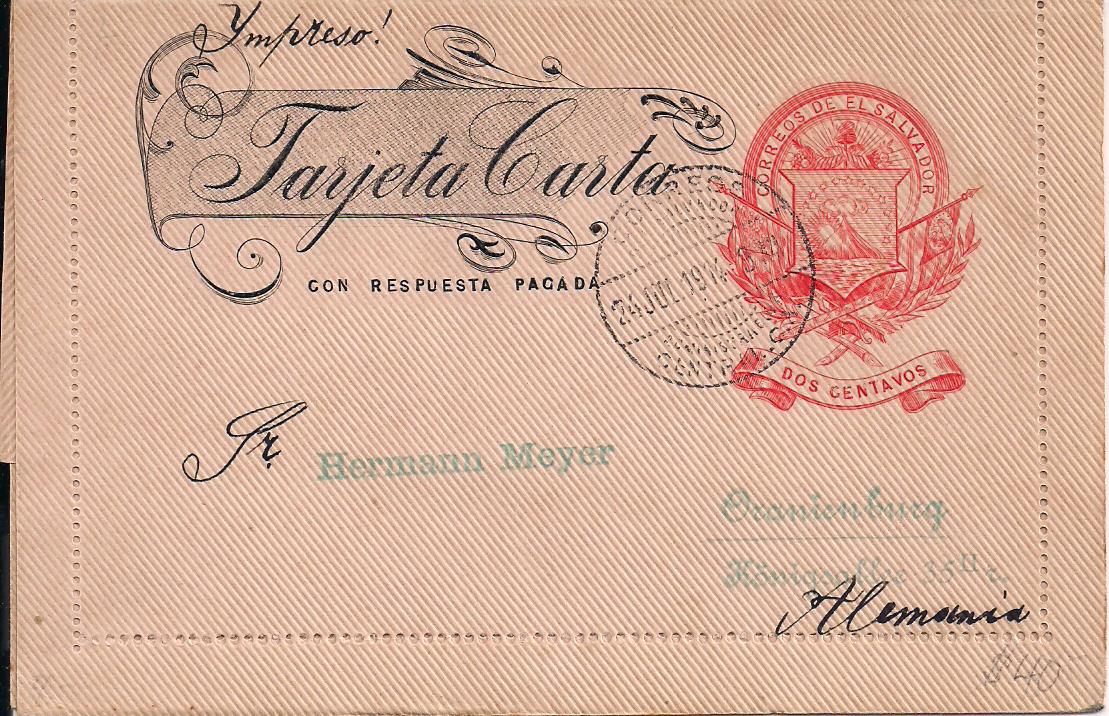 Ympreso!
Tarjeta Carta
CON RESPUESTA PAGADA
CORREOS DE EL SALVADOR
DOS CENTAVOS
CORREOS
24 JUL 19
Sr. Hermann Meyer
Oranienburg
Königsallee 35 II r.
Alemania
$ 40